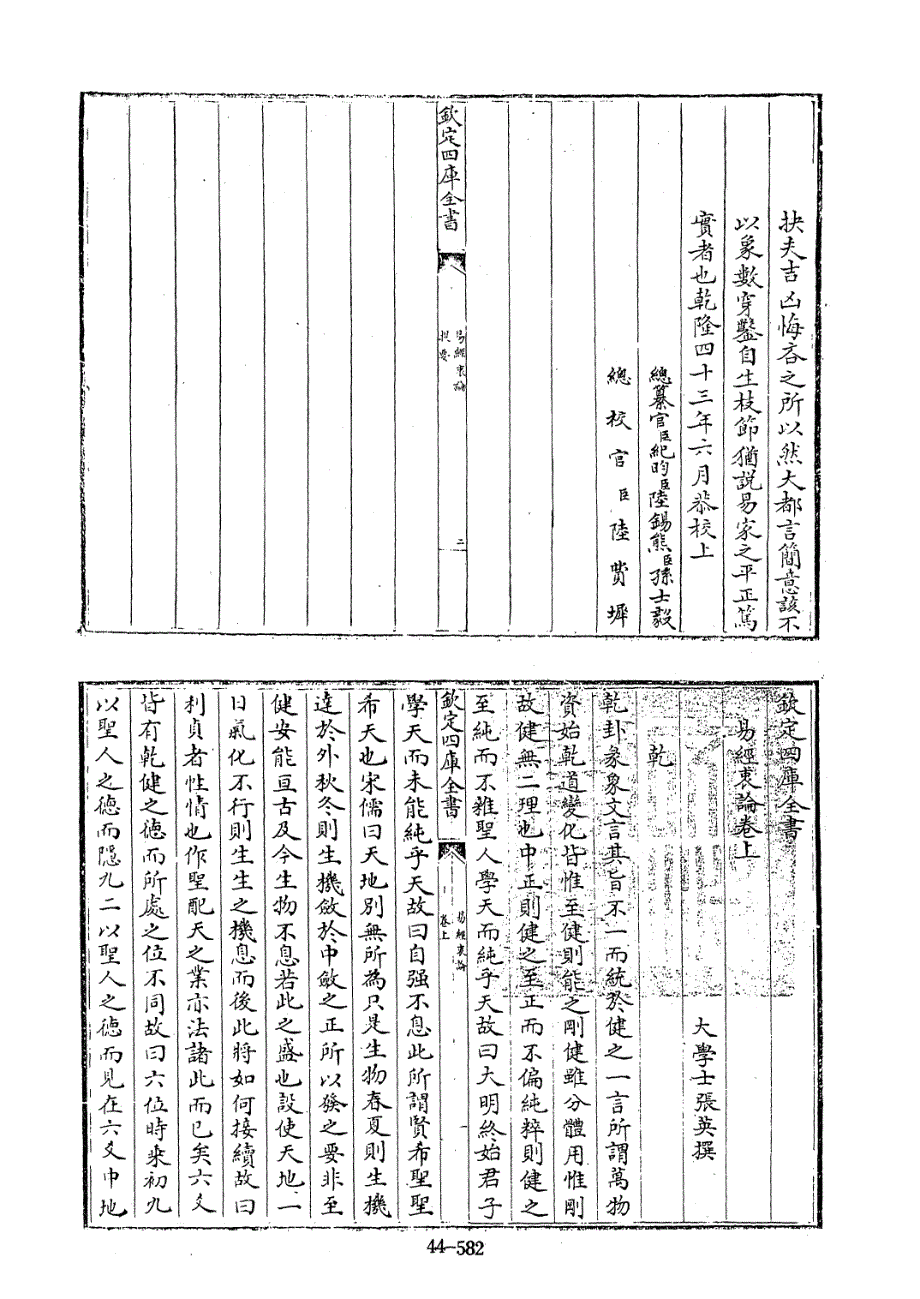 抉夫吉凶悔吝之所以然大都言簡意該不
以象數穿鑿自生枝節猶説易家之平正篤
實者也乾隆四十三年六月恭校上
總纂官臣紀昀臣陸錫熊臣孫士毅
總校官臣陸費墀
欽定四庫全書
易經衷論
提要
二
欽定四庫全書
易經衷論卷上
大學士張英撰
乾
乾卦彖象文言其旨不一而統於健之一言所謂萬物
資始乾道變化皆惟至健則能之剛健雖分體用惟剛
故健無二理也中正則健之至正而不偏純粹則健之
至純而不雜聖人學天而純乎天故曰大明終始君子
欽定四庫全書
易經衷論
卷上
一
學天而未能純乎天故曰自强不息此所謂賢希聖聖
希天也宋儒曰天地別無所為只是生物春夏則生機
達於外秋冬則生機斂於中斂之正所以發之要非至
健安能亘古及今生物不息若此之盛也設使天地一
日氣化不行則生生之機息而後此將如何接續故曰
利貞者性情也作聖配天之業亦法諸此而已矣六爻
皆有乾健之德而所處之位不同故曰六位時來初九
以聖人之德而隱九二以聖人之德而見在六爻中地
44-582